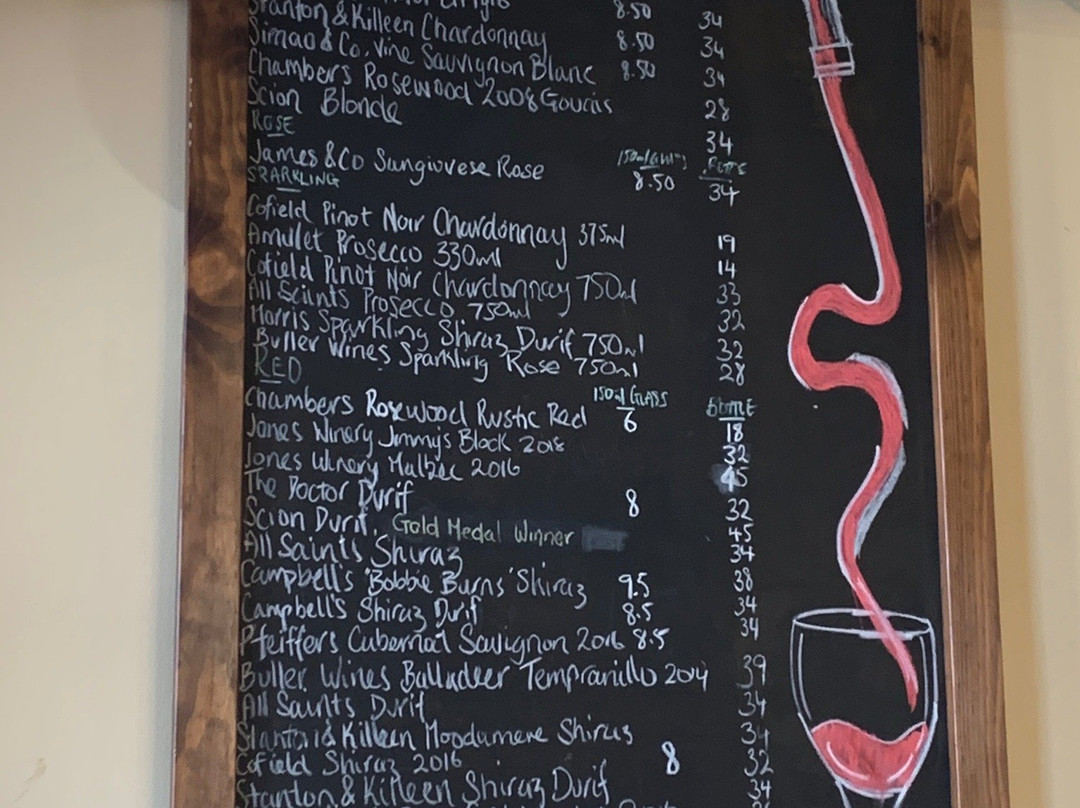 Stanton & Killeen Chardonnay 8.50 34
Simao & Co. Vine Sauvignon Blanc 8.50 34
Chambers Rosewood 2008 Gouais 8.50 34
Scion Blonde 28
ROSE 34
James & Co Sangiovese Rose 8.50 34
SPARKLING
Cofield Pinot Noir Chardonnay 375ml 19
Amulet Prosecco 330ml 14
Cofield Pinot Noir Chardonnay 750ml 33
All Saints Prosecco 750ml 32
Morris Sparkling Shiraz Durif 750ml 32
Buller Wines Sparkling Rose 750ml 28
RED 150ml GLASS BOTTLE
Chambers Rosewood Rustic Red 6 18
Jones Winery Jimmy's Block 2018 32
Jones Winery Malbec 2016 45
The Doctor Durif 8 32
Scion Durif, Gold Medal Winner 45
All Saints Shiraz 34
Campbell's 'Bobbie Burns' Shiraz 9.5 38
Campbell's Shiraz Durif 8.5 34
Pfeiffers Cabernat Sauvignon 2016 8.5 34
Buller Wines Balladeer Tempranillo 2014 39
All Saints Durif 34
Stanton & Killeen Moodamere Shiraz 34
Cofield Shiraz 2016 8 32
Stanton & Killeen Shiraz Durif 34